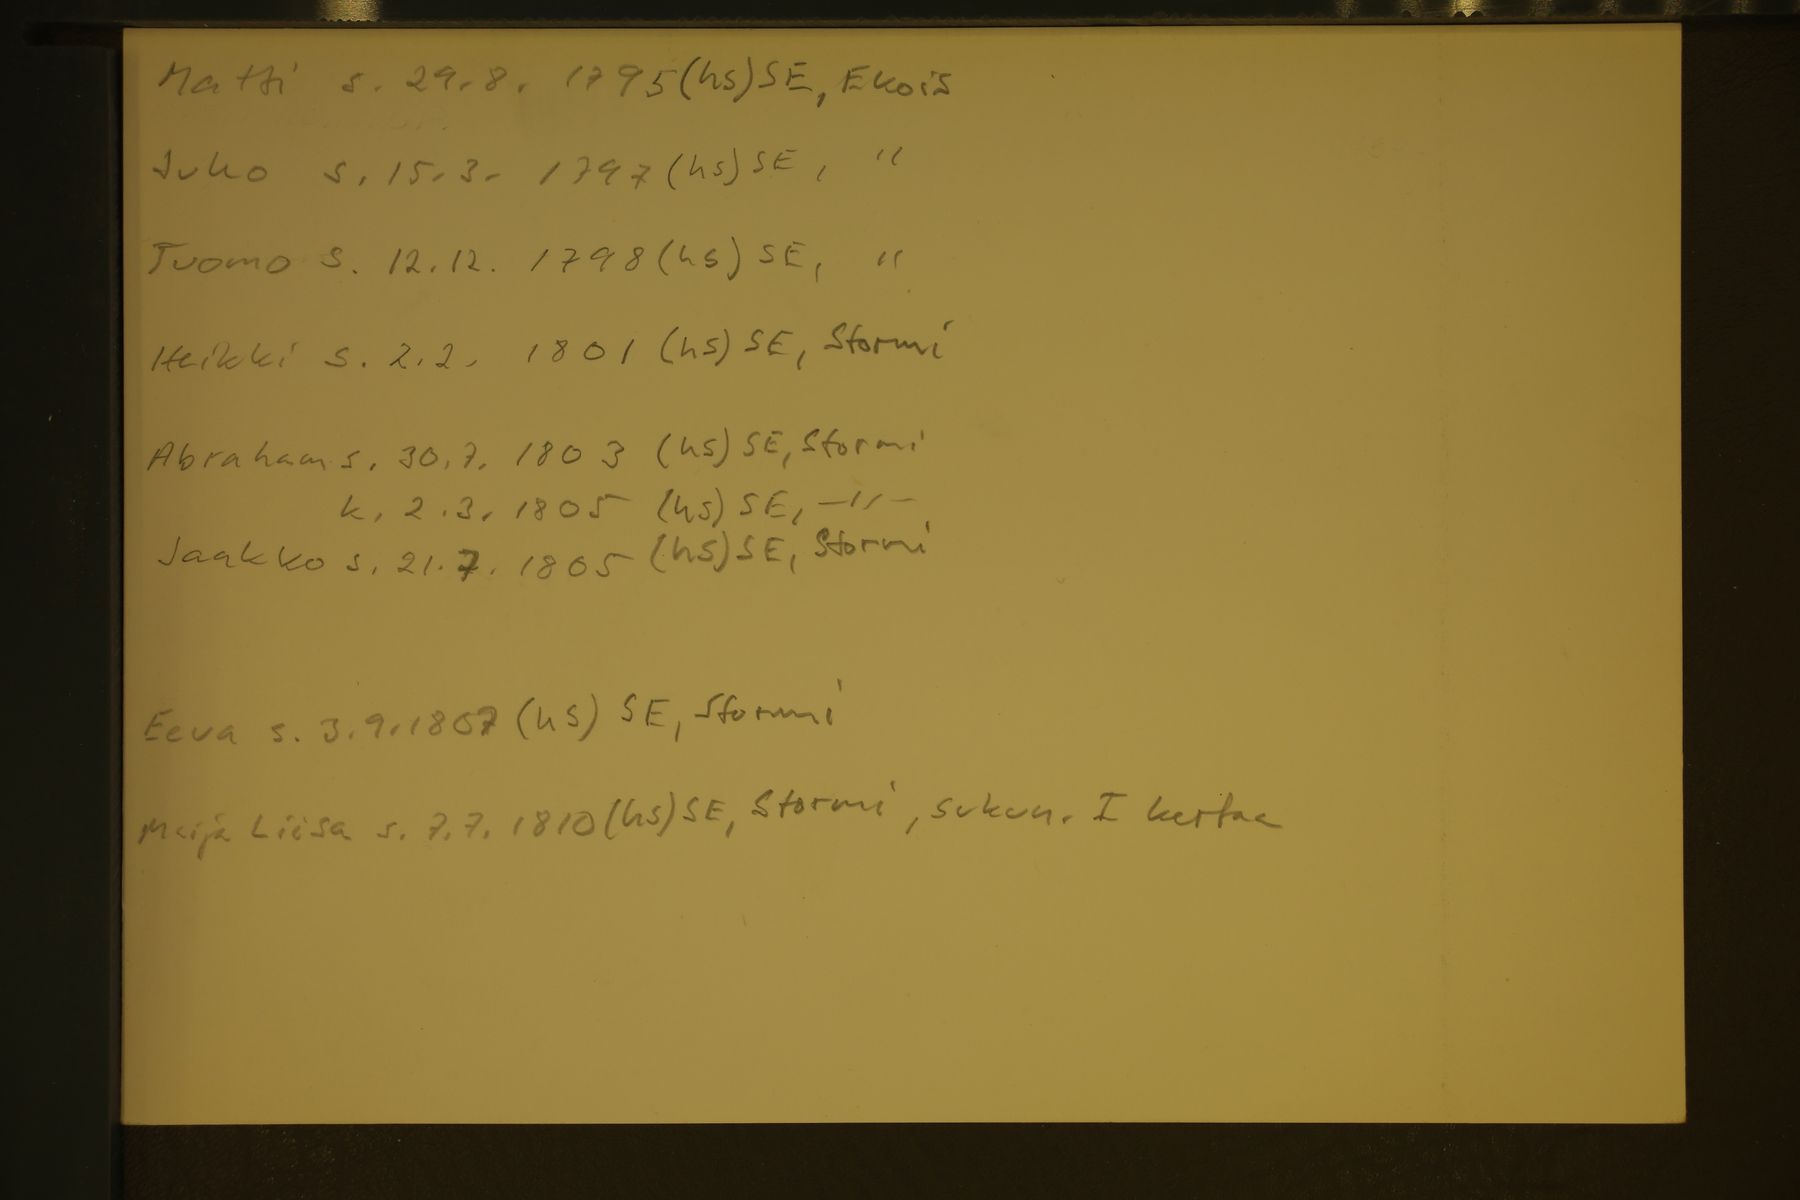 Matti s. 29.8. 1795 (hs) SE, Ekois
Juho s. 15.3. 1797 (hs) SE, "
Tuomo s. 12.12. 1798 (hs) SE, "
Heikki s. 2.2. 1801 (hs) SE, Stormi
Abraham s. 30.7. 1803 (hs) SE, Stormi
k. 2.3. 1805 (hs) SE, -"-
Jaakko s. 21.7. 1805 (hs) SE, Stormi
Eeva s. 3.9.1807 (hs) SE, Stormi
Maija Liisa s. 7.7. 1810 (hs) SE, Stormi, sukun. I kertaa